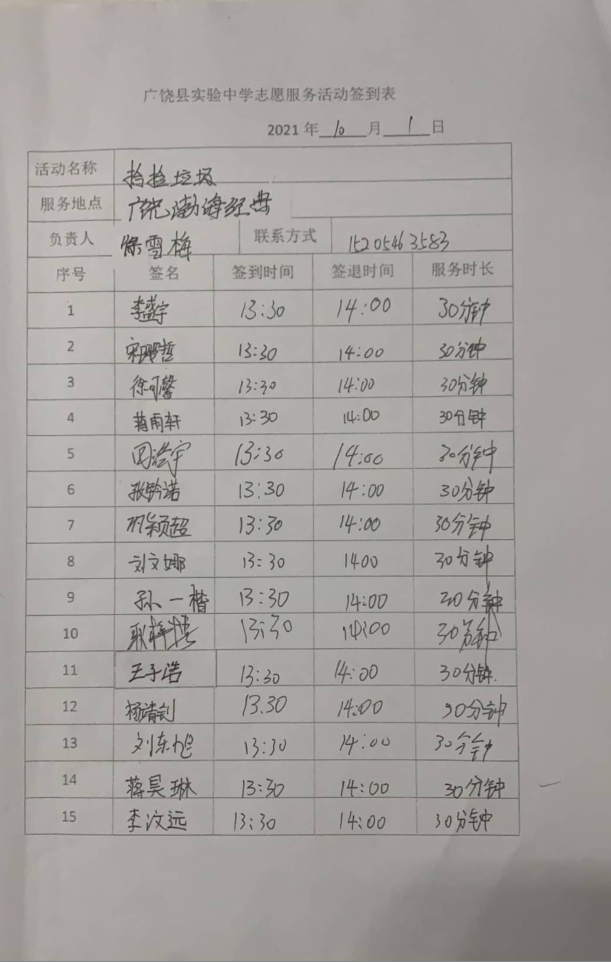 广饶县实验中学志愿服务活动签到表
2021 年 10 月 1 日
活动名称 捡捡垃圾
服务地点 广饶渤海经典
负责人 徐雪梅 联系方式 15205463583
序号 签名 签到时间 签退时间 服务时长
1 李 宇 13:30 14:00 30分钟
2 13:30 14:00 30分钟
3 徐可馨 13:30 14:00 30分钟
4 蒋雨轩 13:30 14:00 30分钟
5 周 宇 13:30 14:00 30分钟
6 张钤诺 13:30 14:00 30分钟
7 颖超 13:30 14:00 30分钟
8 刘文娜 13:30 1400 30分钟
9 孙一楷 13:30 14:00 30分钟
10 耿梓 13:30 14:00 30分钟
11 王子浩 13:30 14:00 30分钟.
12 杨靖 13.30 14:00 30分钟
13 刘东旭 13:30 14:00 30分钟
14 蒋昊琳 13:30 14:00 30分钟
15 李汶远 13:30 14:00 30分钟